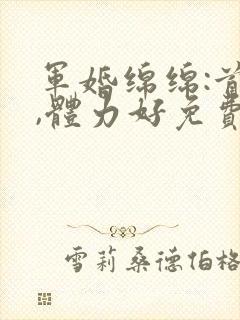 軍婚綿綿:首
,體力好免費
雪莉桑德伯格